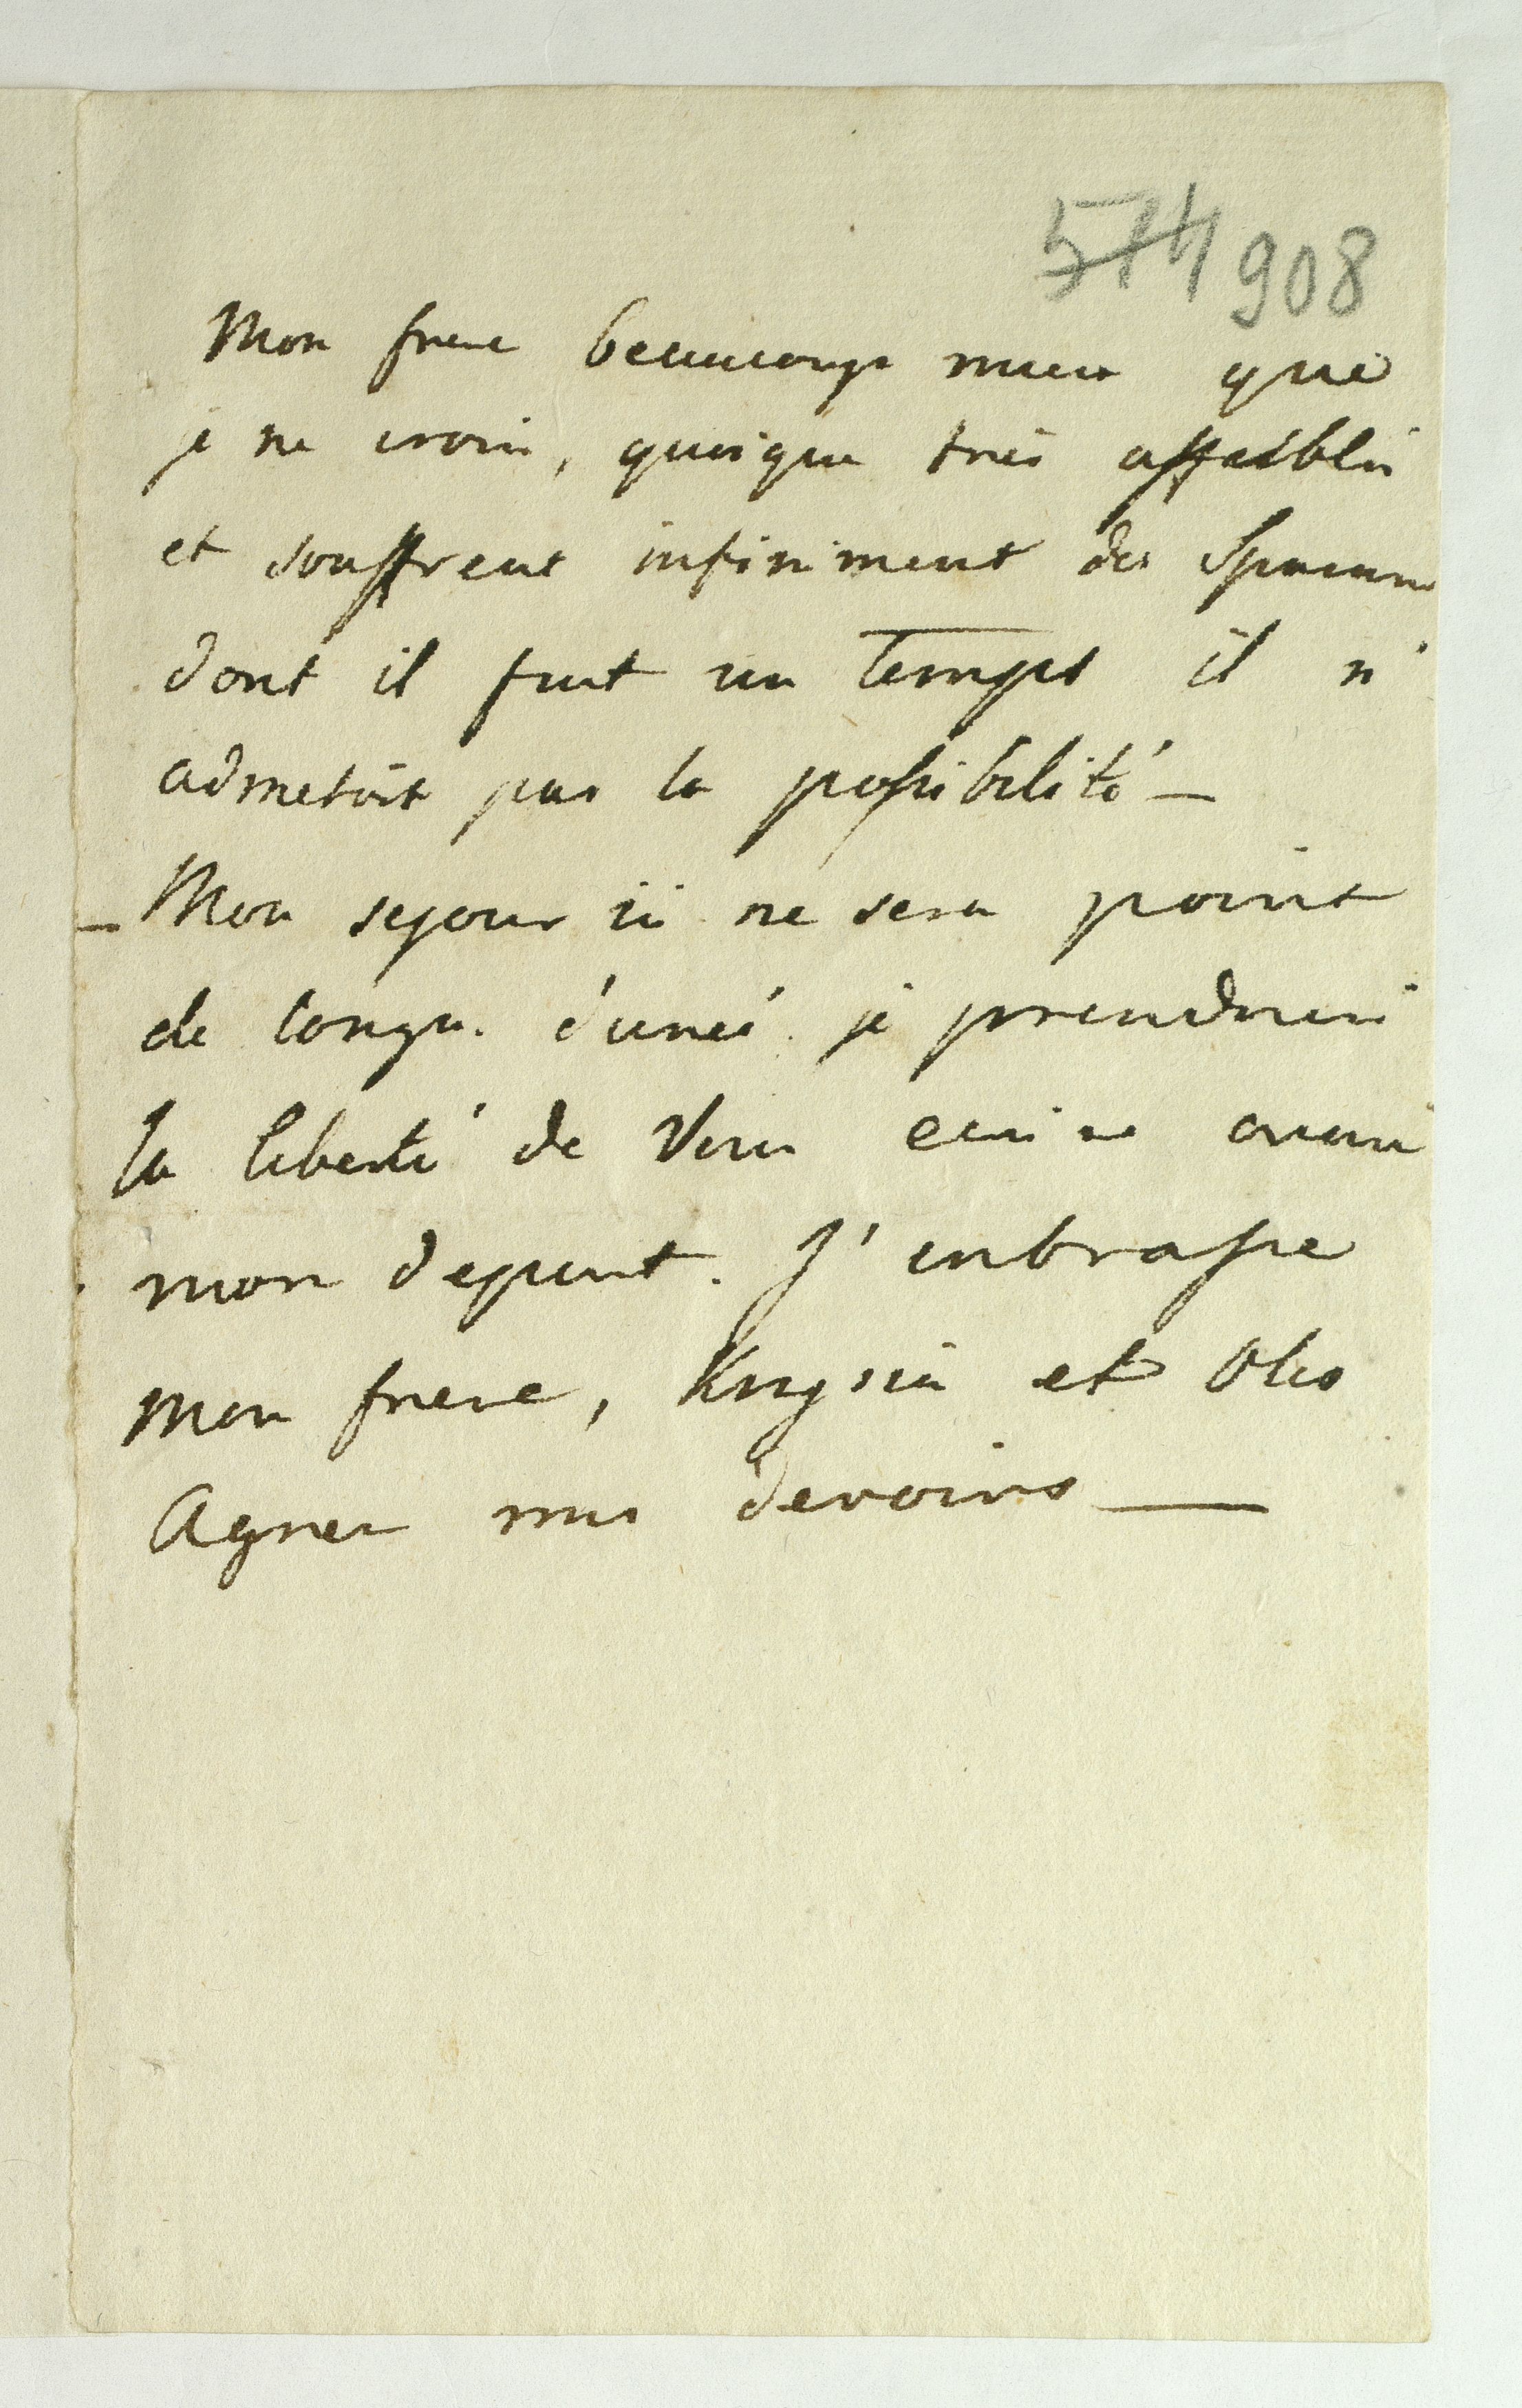 574 908
Mon frere beaucoup mieux que
je ne crois, quoique très affaibli
et souffrent infiniment des Spasmes
dont il fut un Temps il n'
admetoit pas la possibilité —
— Mon sejour ici ne sera point
de longu. dureé. je prendrai
la liberté de Vous ecrire avan
mon depart. J' enbrasse
mon frere, Krysia et Oles
Agrees mes devoirs —